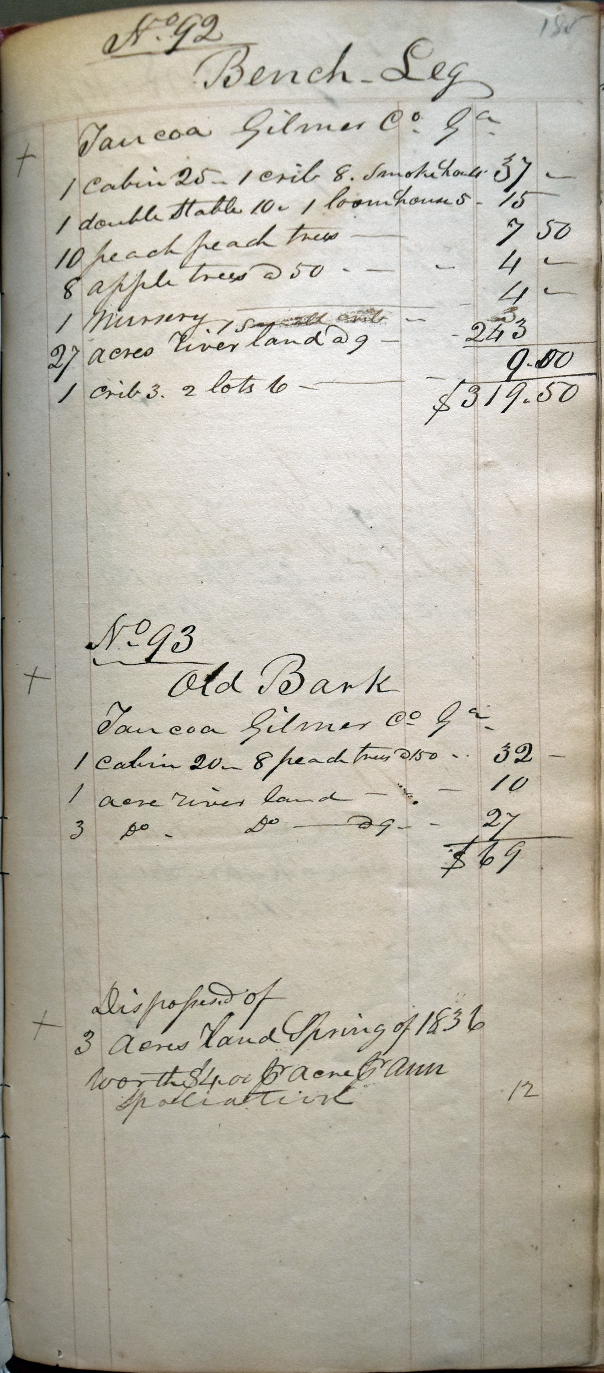 No 92
Bench-Leg
Taucoa Gilmer Co. Ga.
+
1 cabin 25 - 1 crib 8. Smokehouse 37 -
1 double Stable 10 - 1 loomhouse 5 - 15
10 peach peach trees — 7 50
8 apple trees @ 50 - — - 4 -
1 Nursery, 1 small crib - 4 -
27 acres river land @ 9 - - 243
1 crib 3. 2 lots 6 — - 9.00
$319.50
No 93
+ Old Bark
Taucoa Gilmer Co. Ga.
1 cabin 20 - 8 peach trees @ 50 - - 32 -
1 acre river land - - - 10
3 Do - Do — @ 9 - - 27
$69
Disposessd of
+ 3 Acres land Spring of 1836
worth $4.00 pr acre pr Ann
Spoliation 12